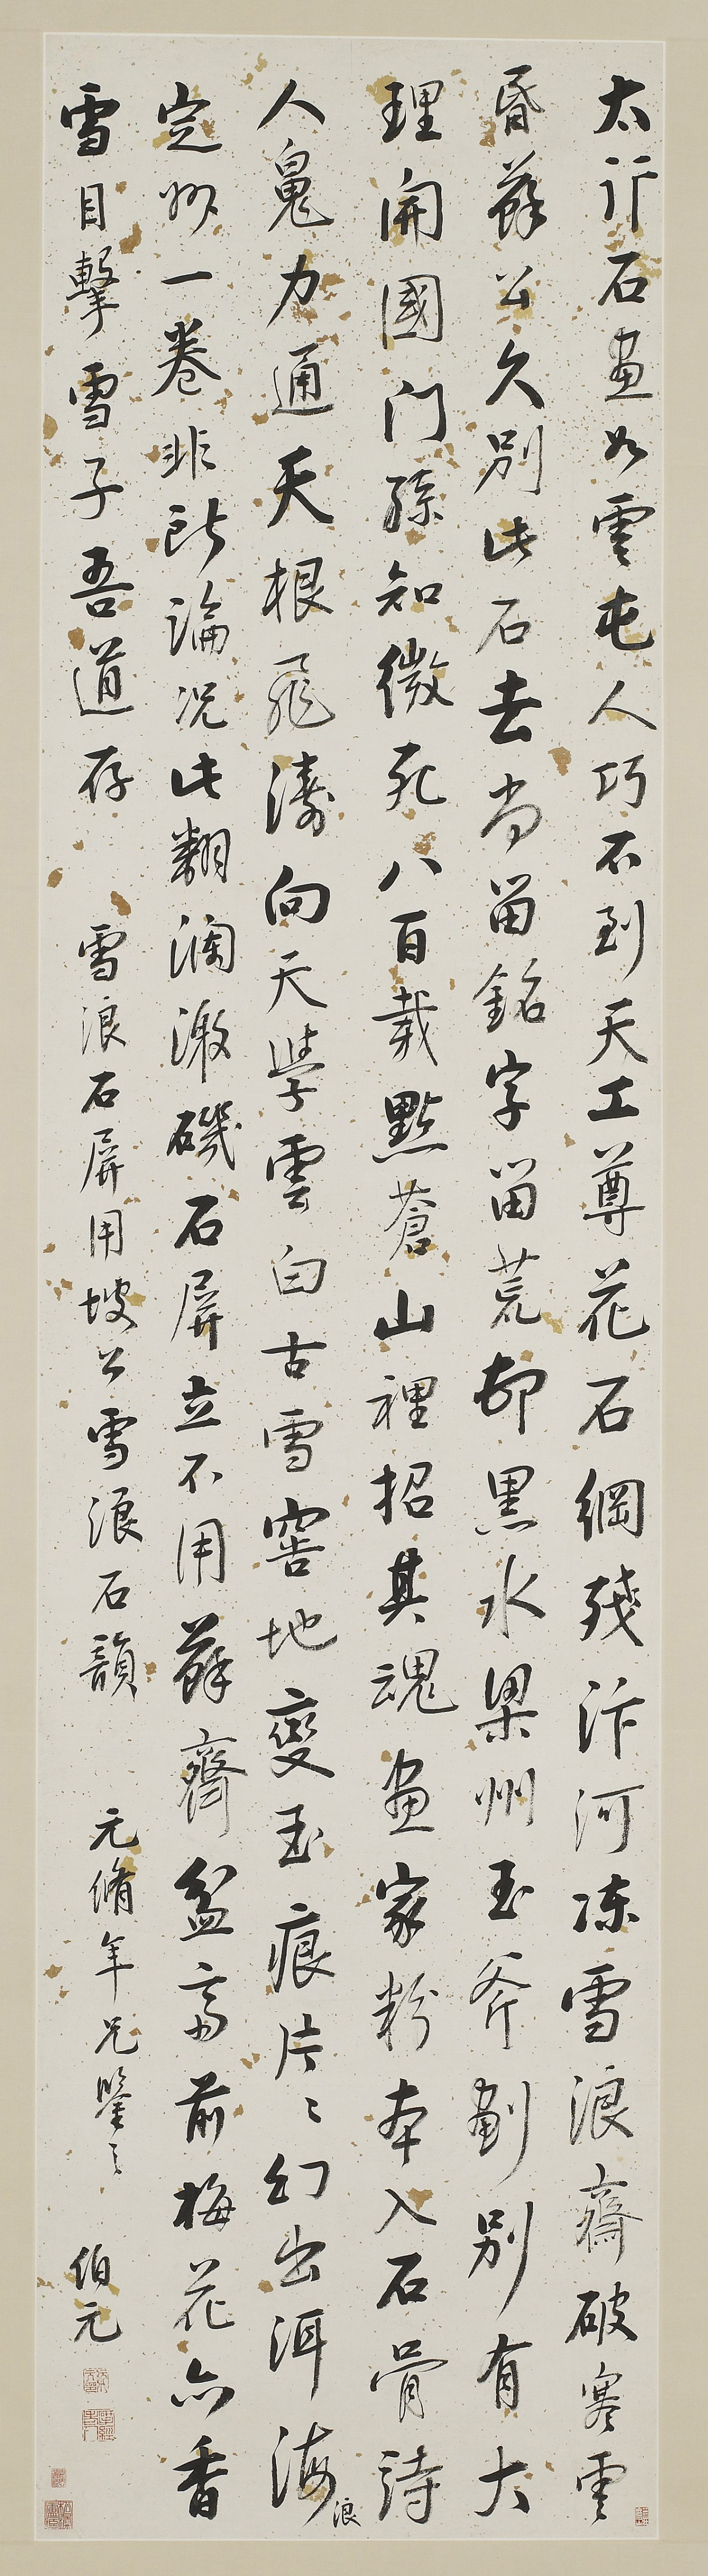 太行石畫如雲屯人巧不到天工尊花石綱殘汴河凍雪浪齋破寒雲
昏蘇公久別此石去尚留銘字留荒邨黑水梁州玉斧劃別有大
理開國門孫知微死八百載點蒼山裡招其魂畫家粉本入石骨詩
人鬼力通天根飛濤向天學雲白古雪窖地變玉痕片〻幻出洱海浪
定州一卷非所論況此翻瀾激磯石屏立不用蘇齋盆亭前梅花亦香
雪目擊雪子吾道存 雪浪石屏用坡公雪浪石韻 元脩年兄鑒之 伯元